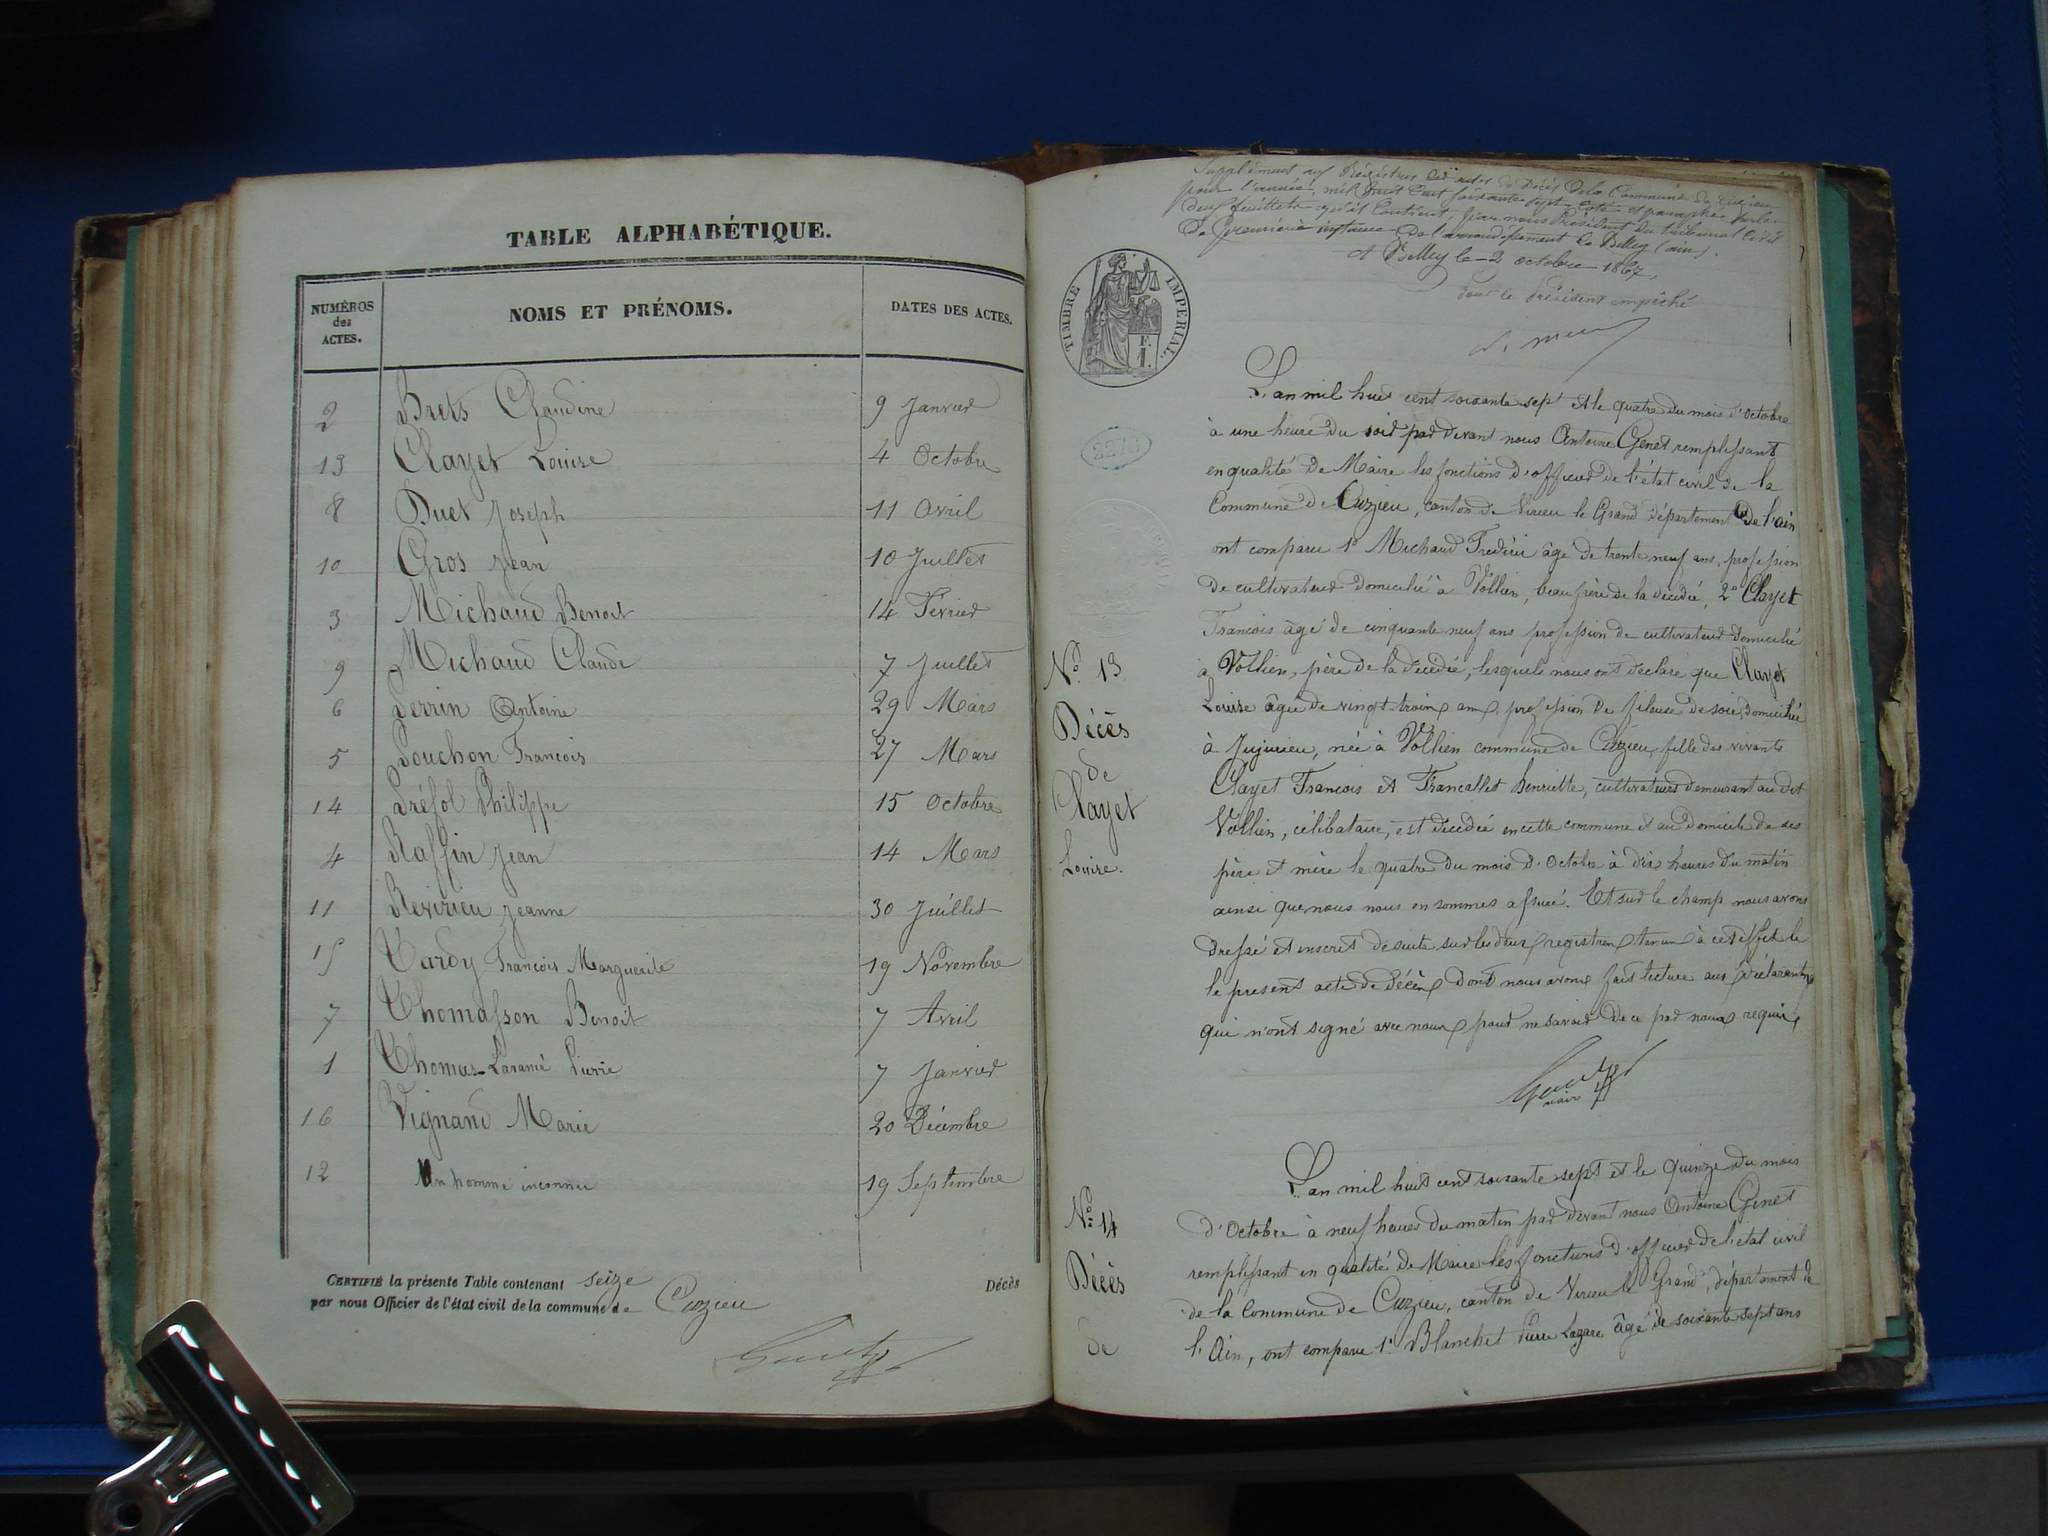 TABLE ALPHABÉTIQUE.
NUMÉROS des ACTES. NOMS ET PRÉNOMS. DATES DES ACTES.
2 Brets Claudine 9 Janvier
13 Clayet Louise 4 Octobre
8 Duet Joseph 11 Avril
10 Gros Jean 10 Juillet
3 Michaud Benoit 14 Février
9 Michaud Claude 7 Juillet
6 Perrin Antoine 29 Mars
5 Pouchon Francois 27 Mars
14 Préfol Philippe 15 Octobre
4 Raffin Jean 14 Mars
11 Revirieu Jeanne 30 Juillet
15 Tardy Francois Marguerite 19 Novembre
7 Thomasson Benoit 7 Avril
1 Thomas-Lazamé Pierre 7 Janvier
16 Vignand Marie 20 Décembre
12 Un homme inconnu 19 Septembre
CERTIFIÉ la présente Table contenant seize Décès
par nous Officier de l'état civil de la commune de Cuzieu
Supplément aux Régistres des actes de Décès de la Commune de Cuzieu
pour l'année mil huit Cent soixante sept coté et paraphé sur les
deux feuillets qu'il Contient, par nous Président du tribunal Civil
De première instance de l'arrondissement de Belley (ain).
A Belley le 2 octobre 1867.
Pour le Président empêché
TIMBRE IMPERIAL.
F.
1.
L'an mil huit cent soixante sept et le quatre du mois d'Octobre
à une heure du soir par devant nous Antoine Genet remplissant
en qualité de Maire les fonctions d'officier de l'état civil de la
Commune de Cuzieu, canton de Virieu le Grand département de l'ain
ont comparu 1° Michaud Frederic âgé de trente neuf ans, profession
de cultivateur domicilié à Vollien, beau frère de la décédée, 2° Clayet
Francois âgé de cinquante neuf ans profession de cultivateur domicilié
à Vollien, père de la décédée, lesquels nous ont déclaré que Clayet
Louise âgée de vingt-trois ans, profession de fileuse de soie, domiciliée
à Jujurieu, née à Vollien commune de Cuzieu, fille des vivants
Clayet Francois et Francallet henriette, cultivateurs demeurant au dit
Vollien, célibataire, est décédée en cette commune et au domicile de ses
père et mère le quatre du mois d'Octobre à dix heures du matin
ainsi que nous nous en sommes assuré. Et sur le champ nous avons
dressé et inscrit de suite sur les deux registres tenus à cet effet le
le present acte de décès dont nous avons fait lecture aux déclarants
qui n'ont signé avec nous pour ne savoir de ce par nous requis
Genet
maire
N° 13
Décès
de
Clayet
Louise.
L'an mil huit cent soixante sept et le quinze du mois
d'Octobre à neuf heures du matin par devant nous Antoine Genet
remplissant en qualité de Maire les fonctions d'officier de l'etat civil
de la Commune de Cuzieu, canton de Virieu le Grand, département de
l'Ain, ont comparu 1° Blanchet Pierre Lazare âgé de soixante sept ans
N° 14
Décès
de